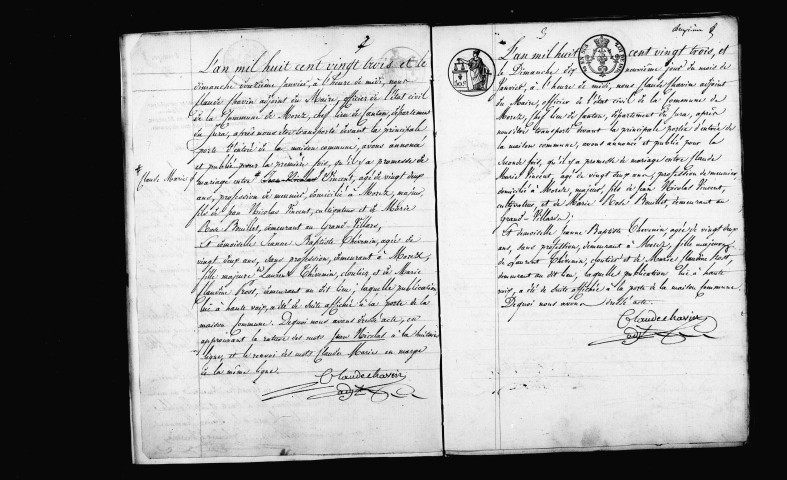 2
L'an mil huit cent vingt trois et le
dimanche douzième janvier, à l'heure de midi, nous
Claude Chavin adjoint du Maire, officier de l'état civil
de la Commune de Morez, chef lieu de Canton, département
du Jura, après nous être transporté devant la principale
porte d'entrée de la maison commune, avons annoncé
et publié pour la première fois, qu'il y a promesse de
Claude Marie
mariage entre Jean Nicolas Vincent, agé de vingt deux
ans, profession de meunier, domicilié à Morez, majeur,
fils de Jean Nicolas Vincent, cultivateur et de Marie
Rose Bouillet, demeurant au Grand-Villars,
Et demoiselle Jeanne Baptiste Thévenin, agée de
vingt deux ans, sans profession, demeurant à Morez,
fille majeure de Laurent Thévenin, cloutier, et de Marie
Claudine Prost, demeurant au dit lieu; laquelle publication,
lue à haute voix, a été de suite affichée à la porte de la
maison Commune. Dequoi nous avons dressé acte, en
approuvant la rature des mots Jean Nicolas à la huitième
ligne, et le renvoi des mots Claude Marie en marge
de la même ligne.
Claude Chavin
adjt
3
deuxième
L'an mil huit cent vingt trois, et
le Dimanche dix neuvième jour du mois de
Janvier, à l'heure de midi, nous Claude Chavin adjoint
du Maire, officier de l'état civil de la Commune de
Morez, chef lieu de Canton, département du Jura, après
nous être transporté devant la principale porte d'entrée de
la maison commune, avons annoncé et publié pour la
seconde fois, qu'il y a promesse de mariage entre Claude
Marie Vincent, agé de vingt deux ans, profession de meunier,
domicilié à Morez, majeur, fils de Jean Nicolas Vincent,
cultivateur, et de Marie Rose Bouillet, demeurant au
Grand-Villars;
Et demoiselle Jeanne Baptiste Thévenin agée de vingt deux
ans, sans profession, demeurant à Morez, fille majeure
de Laurent Thévenin, cloutier et de Marie Claudine Prost,
demeurant au dit lieu, laquelle publication lue à haute
voix, a été de suite affichée à la porte de la maison Commune.
Dequoi nous avons dressé acte.
Claude Chavin
adjt